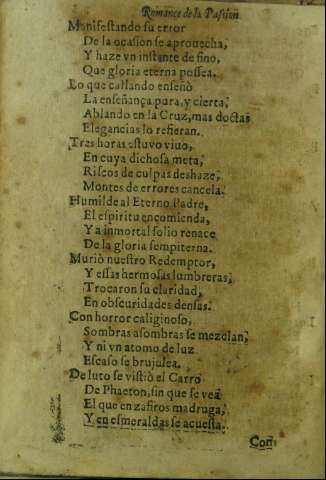 Romance de la Passion
Manifestando su error
De la ocasion se aprouecha,
Y haze vn instante de fino,
Que gloria eterna possea.
Lo que callando enseñò
La enseñança pura, y cierta,
Ablando en la Cruz, mas doctas
Elegancias lo refieran.
Tres horas estuvo viuo,
En cuya dichosa meta,
Riscos de culpas deshaze,
Montes de errores cancela.
Humilde al Eterno Padre,
El espiritu encomienda,
Y a inmortal solio renace
De la gloria sempiterna.
Muriò nuestro Redemptor,
Y essas hermosas lumbreras,
Trocaron su claridad,
En obscuridades densas.
Con horror caliginoso,
Sombras a sombras se mezclan,
Y ni vn atomo de luz
Escaso se brujulea.
De luto se vistiò el Carro
De Phaeton, sin que se vea
El que en zafiros madruga,
Y en esmeraldas se acuesta.
Con